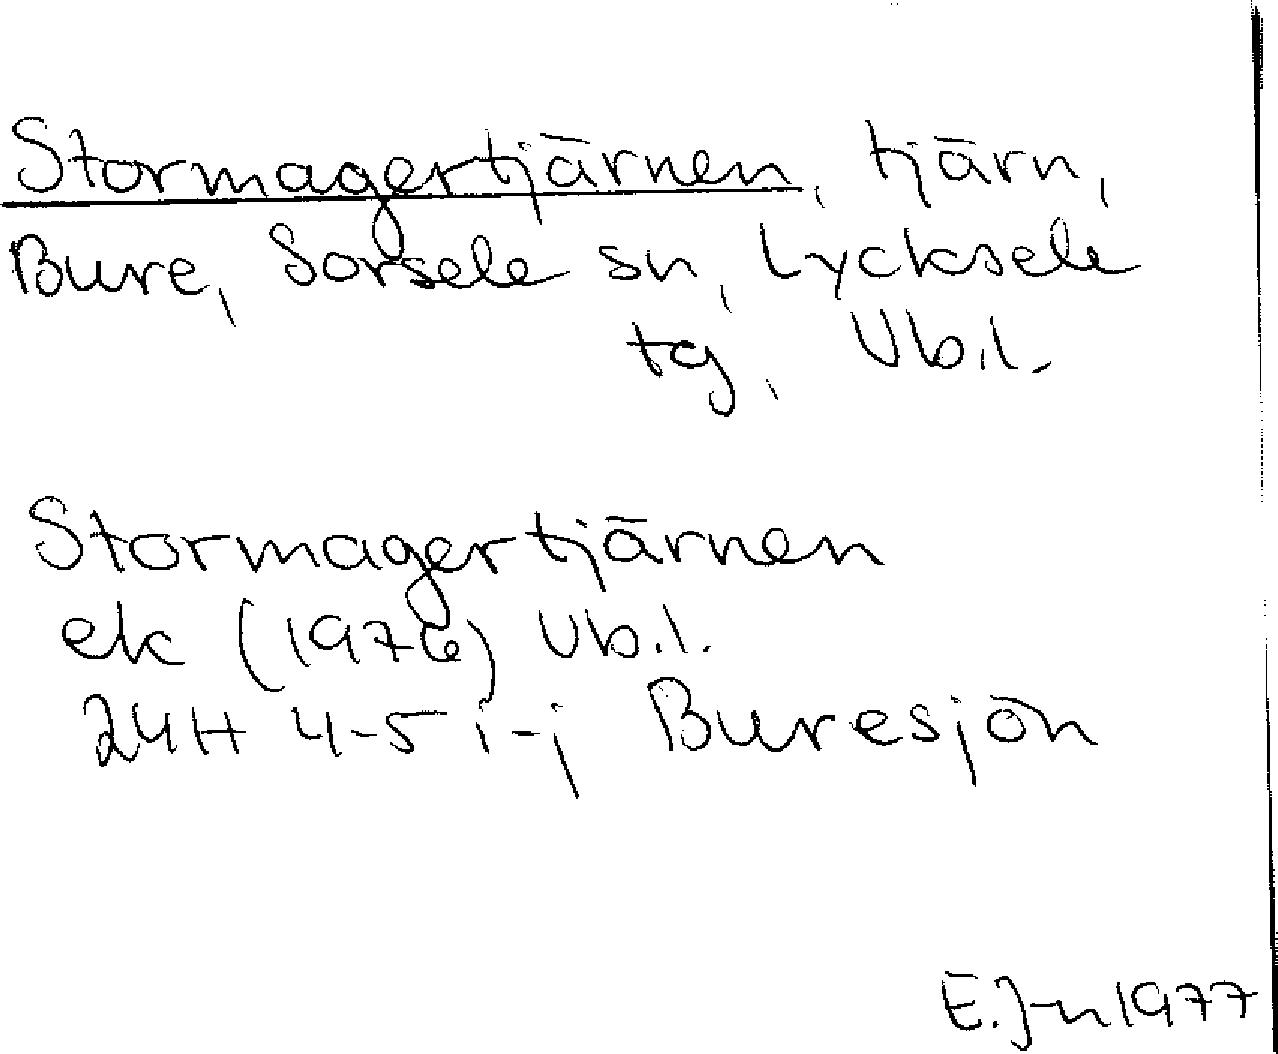 Stormagertjärnen, tjärn,
Bure, Sorsele sn, Lycksele
tg, Vb.l.
Stormagertjärnen
ek (1976) Vb.l.
24H 4-5 i-j Buresjön
E.J-n 1977